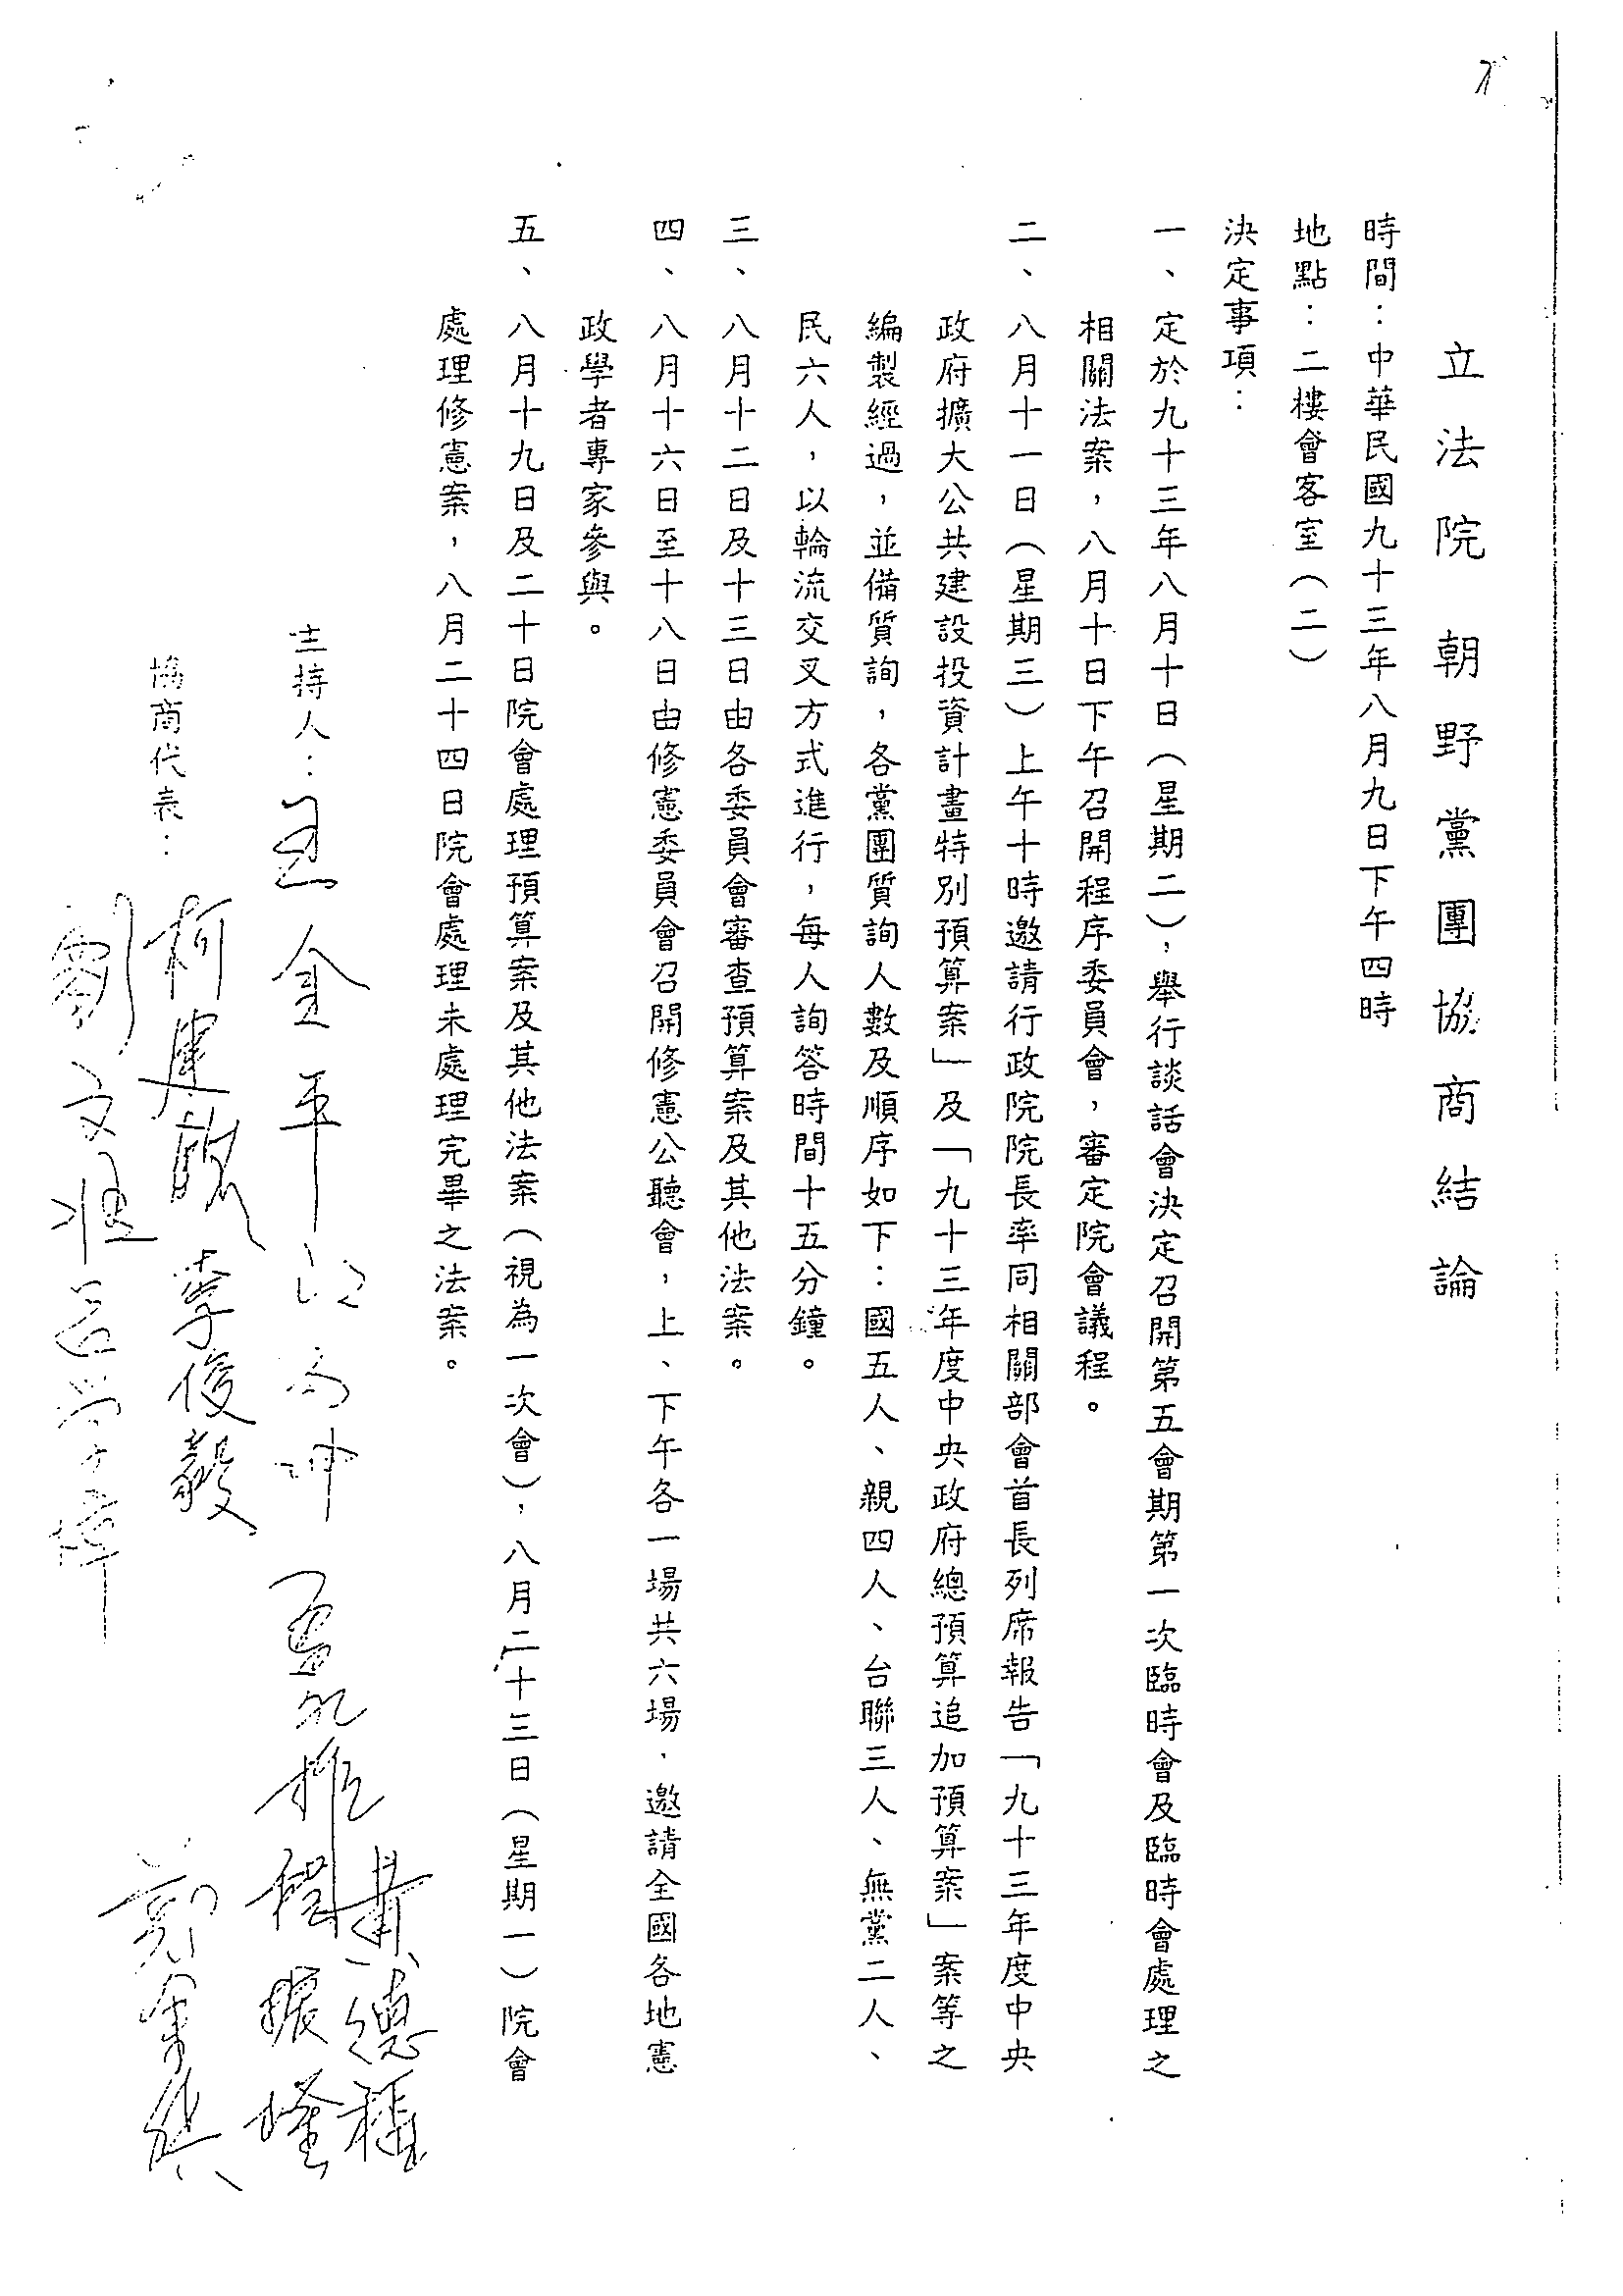 立法院朝野黨團協商結論
時間：中華民國九十三年八月九日下午四時
地點：二樓會客室（二）
決定事項：
一、定於九十三年八月十日（星期二），舉行談話會決定召開第五會期第一次臨時會及臨時會處理之
相關法案，八月十日下午召開程序委員會，審定院會議程。
二、八月十一日（星期三）上午十時邀請行政院院長率同相關部會首長列席報告「九十三年度中央
政府擴大公共建設投資計畫特別預算案」及「九十三年度中央政府總預算追加預算案」案等之
編製經過，並備質詢，各黨團質詢人數及順序如下：國五人、親四人、台聯三人、無黨二人、
民六人，以輪流交叉方式進行，每人詢答時間十五分鐘。
三、八月十二日及十三日由各委員會審查預算案及其他法案。
四、八月十六日至十八日由修憲委員會召開修憲公聽會，上、下午各一場共六場．邀請全國各地憲
政學者專家參與。
五、八月十九日及二十日院會處理預算案及其他法案（視為一次會），八月二十三日（星期一）院會
處理修憲案，八月二十四日院會處理未處理完畢之法案。
主持人：王金平
協商代表：
柯建銘 李俊毅
劉文雄 呂學樟